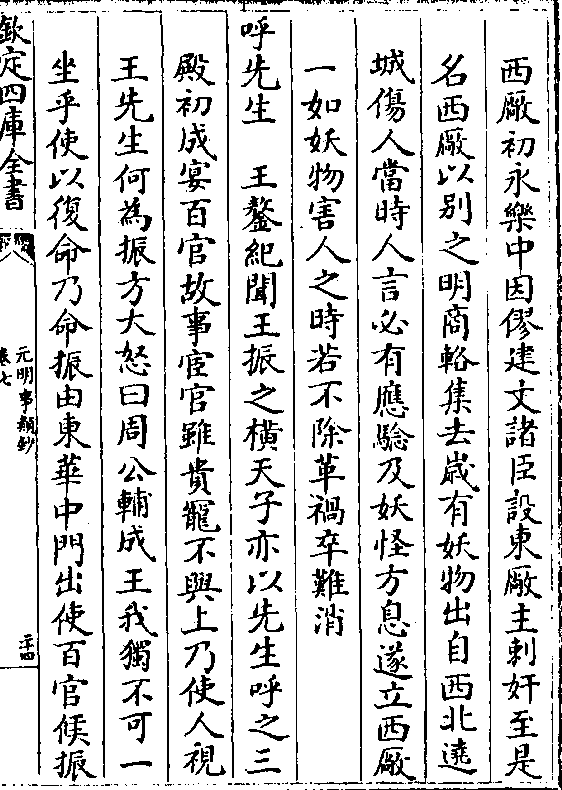 西厰初永樂中因僇建文諸臣設東厰主刺奸至是
名西厰以别之明商輅集去歳有妖物出自西北遶
城傷人當時人言必有應驗及妖怪方息遂立西厰
一如妖物害人之時若不除革禍卒難消
呼先生　王鏊紀聞王振之横天子亦以先生呼之三
殿初成宴百官故事宦官雖貴寵不與上乃使人視
王先生何為振方大怒曰周公輔成王我獨不可一
坐乎使以復命乃命振由東華中門出使百官候振
欽定四庫全書
元明事類鈔
卷七
二十四